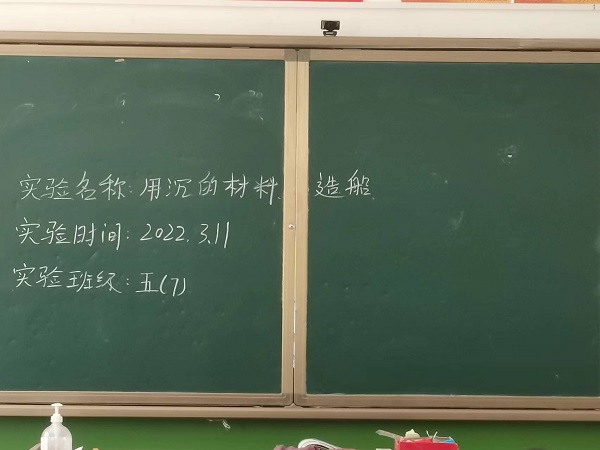 实验名称:用沉的材料造船
实验时间:2022.3.11
实验班级:五(7)